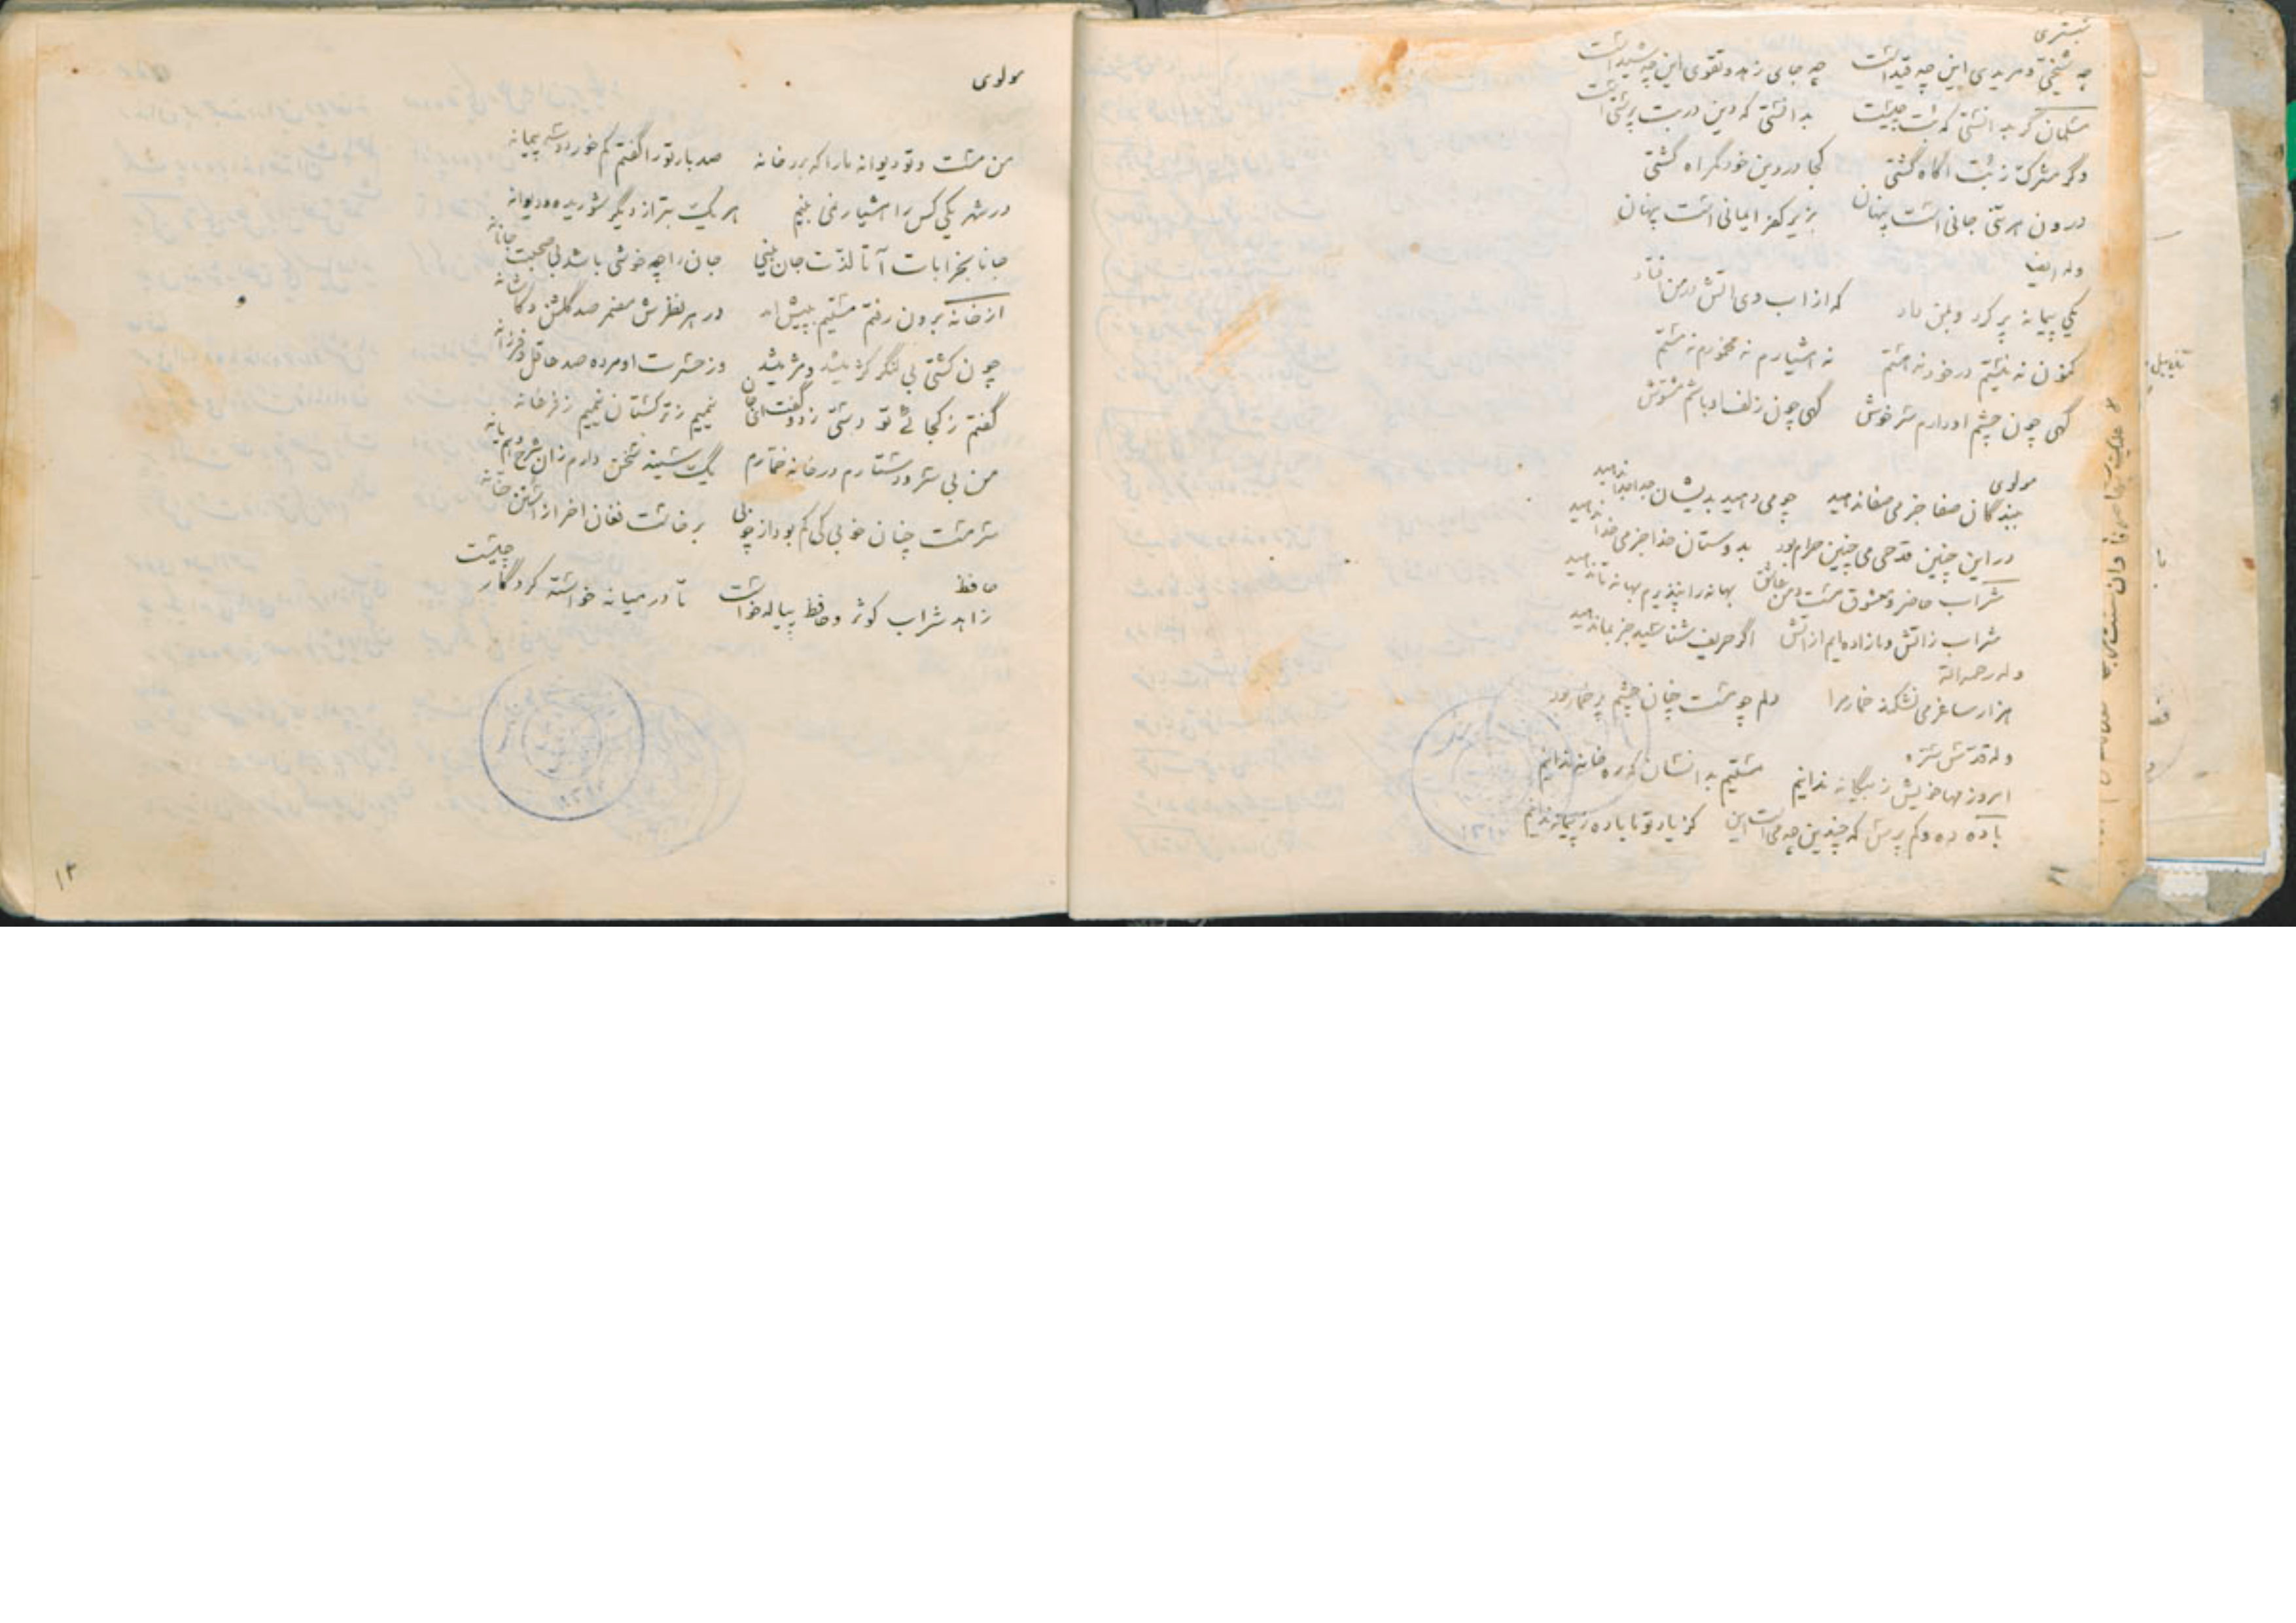 شبستری
چه شیخی و مریدی این چه قیداست چه جای زهد و تقوی این چه شیداست
مسلمان گر بدانستی که بت چیست بدانستی که دین در بت پرستی است
وگر مشرک ز بت اگاه گشتی کجا در دین خود گمراه گشتی
درون هر بتی جانی است پنهان بزیر کفر ایمانی است پنهان
وله ایضا
یکی پیمانه پر کرد و بمن داد که از اب وی اتش در من افتاد
کنون نه نیستم در خود نه هستم نه هشیارم نه مخمورم نه مستم
گهی چون چشم او دارم سر خوش گهی چون زلف او باشم مشوش
مولوی
ببندگان صفا جز می صفا ندهید چو می دهید بدیشان جدا جدا ندهید
در این چنین قدحی می چنین حرام بود بدوستان خدا جز می خدا ندهید
شراب حاضر و معشوق مست و من عاشق بهانه را نپذیرم بهانه تا ندهید
شراب زاتش و ما زاده ایم از اتش اگر حریف شناسید جز بما ندهید
وله رحمه الله
هزار ساغر می نشکند خمار مرا دلم چو مست چنان چشم پر خمار بود
وله قدس سره
امروز مها خویش ز بیگانه ندانیم مستیم بدانسان که ره خانه ندانیم
باده ده و کم پرس که چندین چه می است این کز یاد تو ما باده ز پیمانه ندانیم
۱۱
مولوی
من مست و تو دیوانه ما را که برد خانه صد بار تو را گفتم کم خور دو سه پیمانه
در شهر یکی کس را هشیار نمی بینم هر یک بتر از دیگر شوریده و دیوانه
جانا بخرابات آ تا لذت جان بینی جان را چه خوشی باشد بی صحبت جانانه
از خانه برون رفتم مستیم به پیش امد در هر نظرش مضمر صد گلشن و کاشانه
چون کشتی بی لنگر کژ میشد و مژ میشد وز حسرت او مرده صد عاقل و فرزانه
گفتم ز کجائی تو تسخر زد و گفت ای جان نیمیم ز ترکستان نیمیم ز فرغانه
من بی سر و دستارم در خانه خمارم یک سینه سخن دارم زان شرح دهم یا نه
سرمست چنان خوبی کی کم بود از چوبی برخاست فغان اخر از استن حنانه
حافظ
زاهد شراب کوثر و حافظ پیاله خواست تا در میانه خواسته کردگار چیست
۱۲